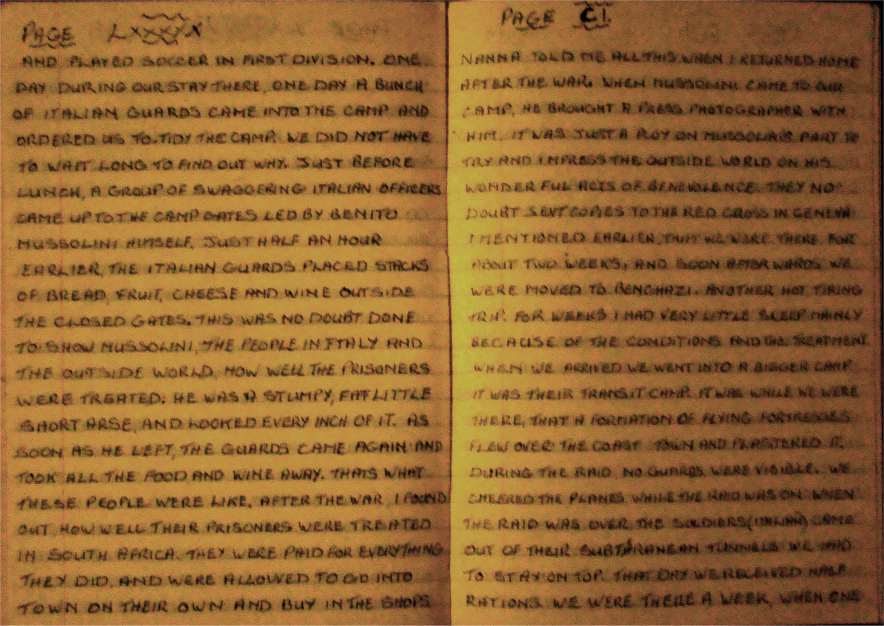 PAGE LXXXX
AND PLAYED SOCCER IN FIRST DIVISION. ONE
DAY DURING OUR STAY THERE, ONE DAY A BUNCH
OF ITALIAN GUARDS CAME INTO THE CAMP AND
ORDERED US TO TIDY THE CAMP. WE DID NOT HAVE
TO WAIT LONG TO FIND OUT WHY. JUST BEFORE
LUNCH, A GROUP OF SWAGGERING ITALIAN OFFICERS
CAME UP TO THE CAMP GATES LED BY BENITO
MUSSOLINI HIMSELF. JUST HALF AN HOUR
EARLIER, THE ITALIAN GUARDS PLACED STACKS
OF BREAD, FRUIT, CHEESE AND WINE OUTSIDE
THE CLOSED GATES. THIS WAS NO DOUBT DONE
TO SHOW MUSSOLINI, THE PEOPLE IN ITALY AND
THE OUTSIDE WORLD, HOW WELL THE PRISONERS
WERE TREATED. HE WAS A STUMPY, FAT LITTLE
SHORT ARSE, AND LOOKED EVERY INCH OF IT. AS
SOON AS HE LEFT, THE GUARDS CAME AGAIN AND
TOOK ALL THE FOOD AND WINE AWAY. THATS WHAT
THESE PEOPLE WERE LIKE. AFTER THE WAR I FOUND
OUT HOW WELL THEIR PRISONERS WERE TREATED
IN SOUTH AFRICA. THEY WERE PAID FOR EVERYTHING
THEY DID, AND WERE ALLOWED TO GO INTO
TOWN ON THEIR OWN AND BUY IN THE SHOPS
PAGE CI.
NANNA TOLD ME ALL THIS WHEN I RETURNED HOME
AFTER THE WAR. WHEN MUSSOLINI CAME TO OUR
CAMP, HE BROUGHT A PRESS PHOTOGRAPHER WITH
HIM. IT WAS JUST A PLOY ON MUSSOLINIS PART TO
TRY AND IMPRESS THE OUTSIDE WORLD ON HIS
WONDERFUL ACTS OF BENEVOLENCE. THEY NO
DOUBT SENT COPIES TO THE RED CROSS IN GENEVA
I MENTIONED EARLIER, THAT WE WERE THERE FOR
ABOUT TWO WEEKS, AND SOON AFTERWARDS WE
WERE MOVED TO BENGHAZI. ANOTHER HOT TIRING
TRIP. FOR WEEKS I HAD VERY LITTLE SLEEP MAINLY
BECAUSE OF THE CONDITIONS AND THE TREATMENT
WHEN WE ARRIVED WE WENT INTO A BIGGER CAMP
IT WAS THEIR TRANSIT CAMP. IT WAS WHILE WE WERE
THERE, THAT A FORMATION OF FLYING FORTRESSES
FLEW OVER THE COAST TOWN AND PLASTERED IT.
DURING THE RAID NO GUARDS WERE VISIBLE. WE
CHEERED THE PLANES WHILE THE RAID WAS ON. WHEN
THE RAID WAS OVER THE SOLDIERS (ITALIAN) CAME
OUT OF THEIR SUBTARANEAN TUNNELS. WE HAD
TO STAY ON TOP. THAT DAY WE RECEIVED HALF
RATIONS. WE WERE THERE A WEEK, WHEN ONE